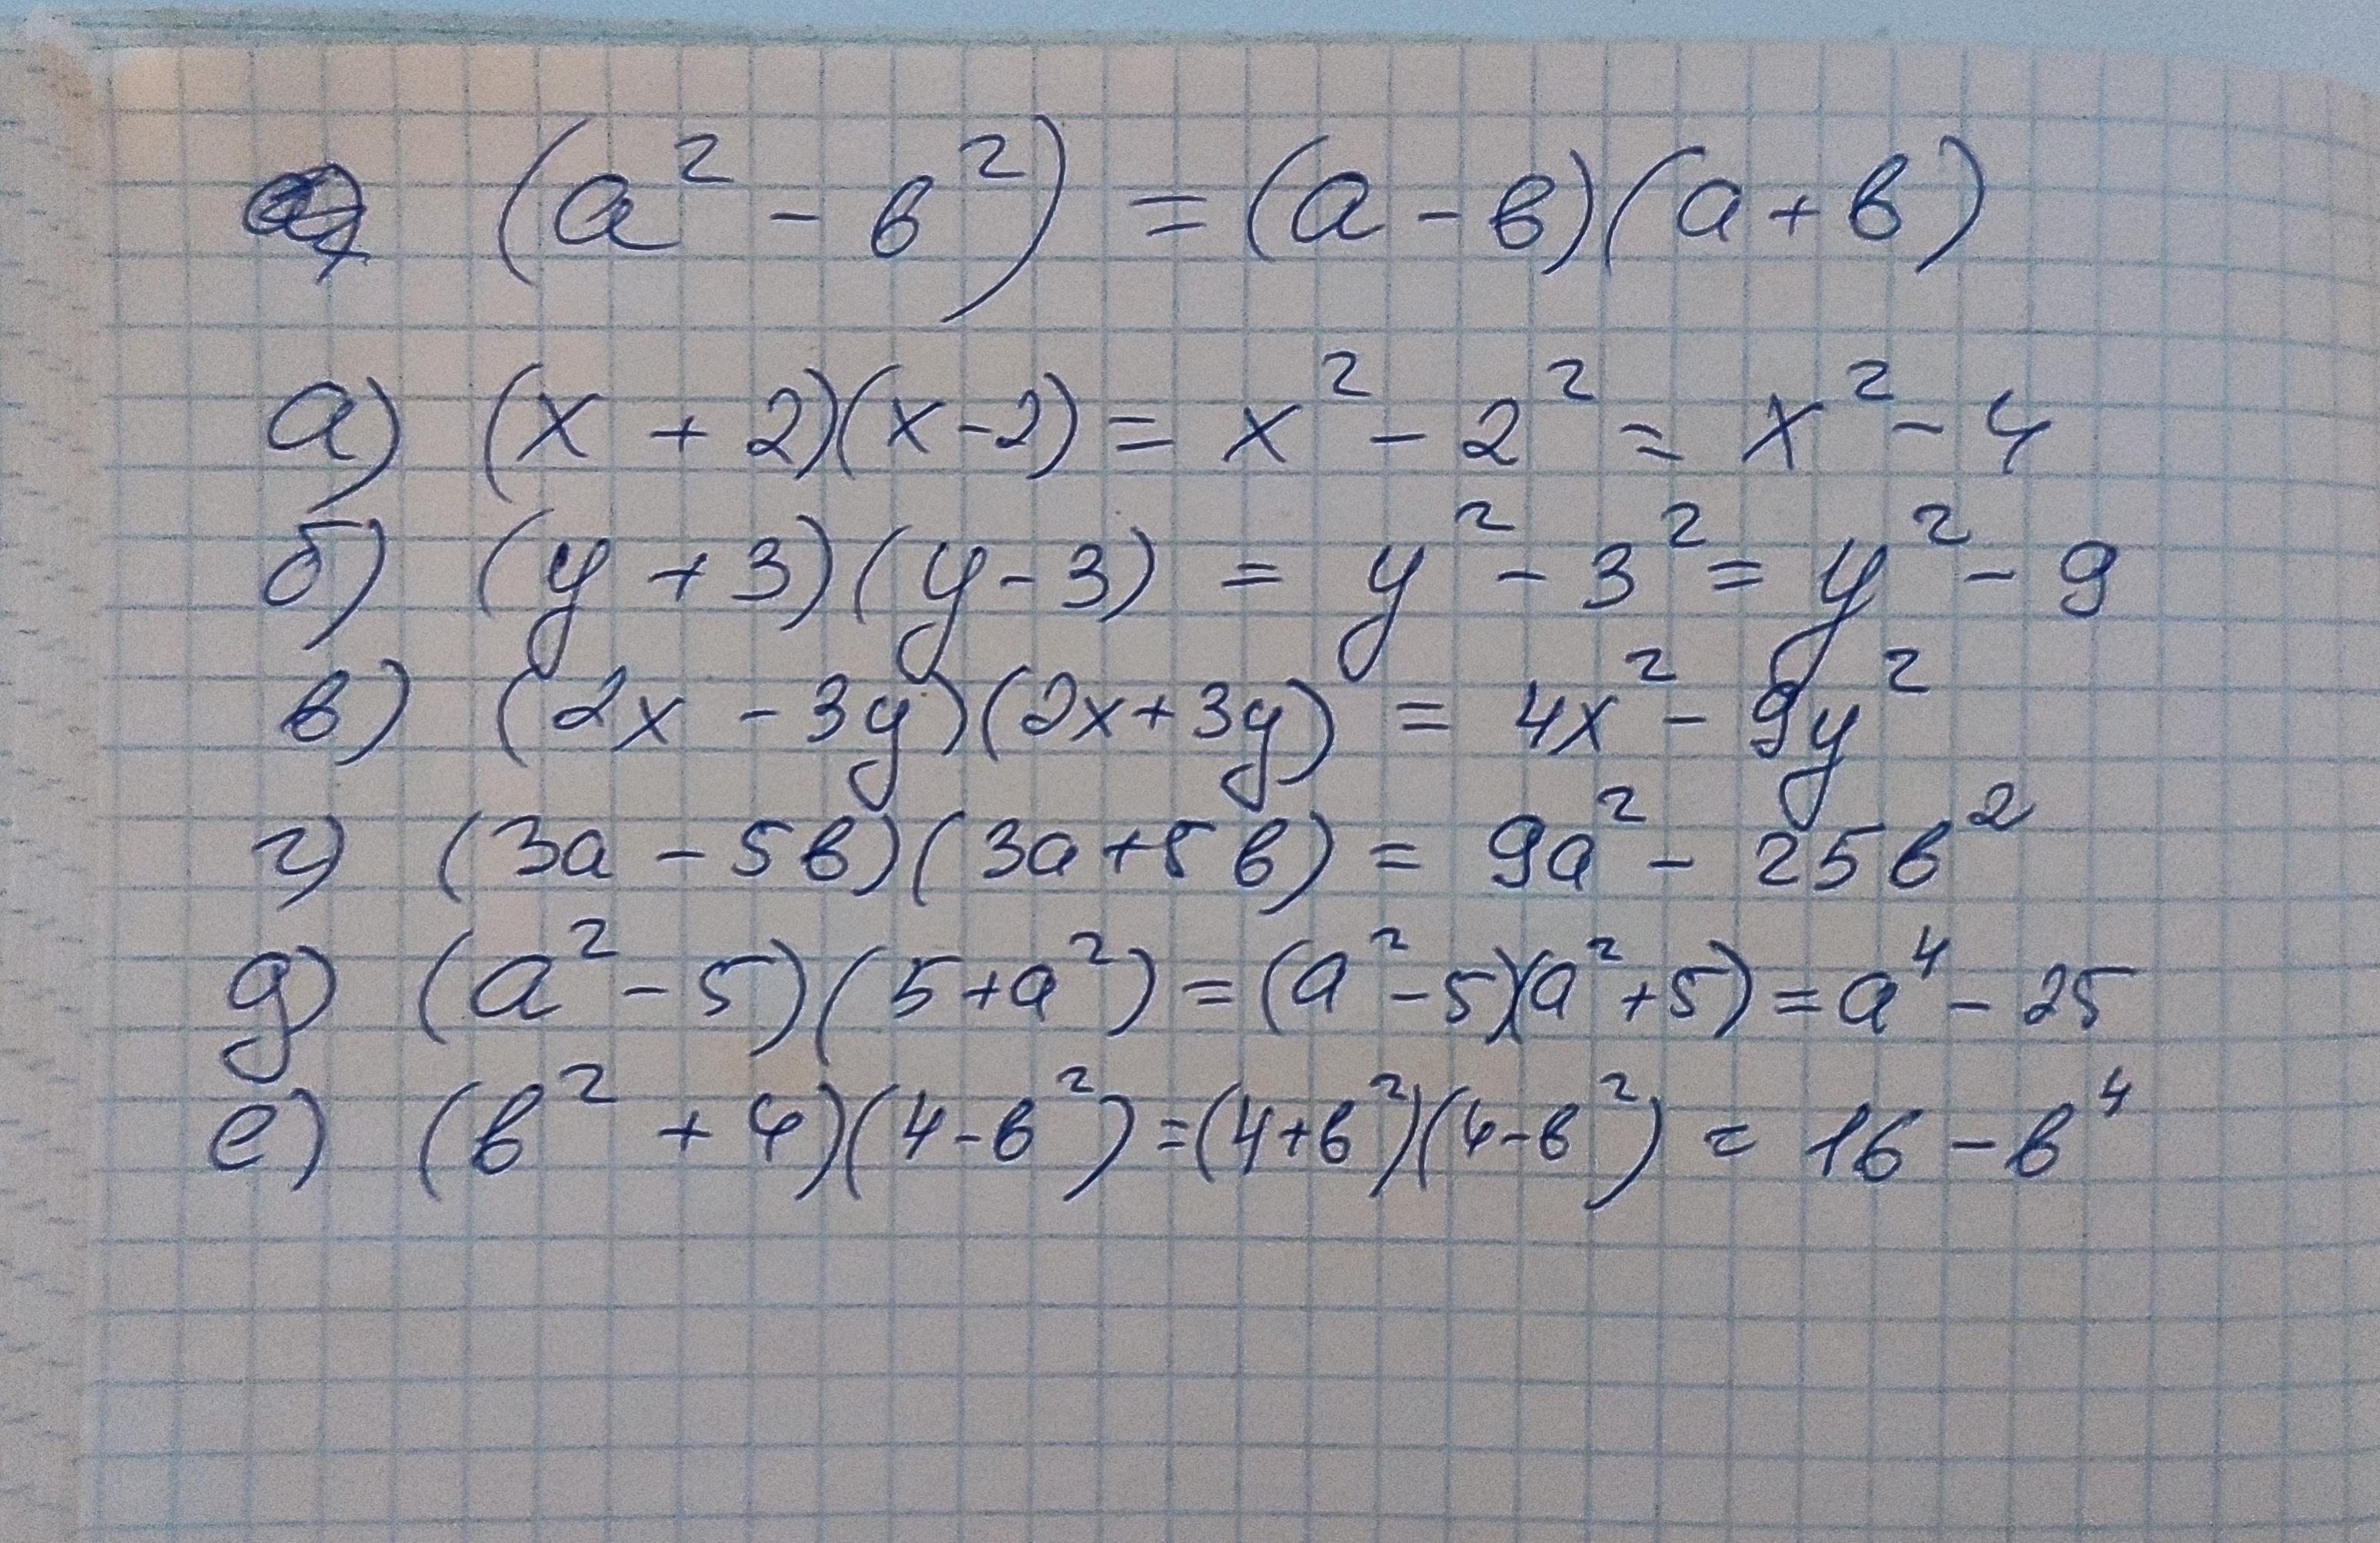 (a² - b²) = (a - b)(a + b)
а) (x + 2)(x - 2) = x² - 2² = x² - 4
б) (y + 3)(y - 3) = y² - 3² = y² - 9
в) (2x - 3y)(2x + 3y) = 4x² - 9y²
г) (3a - 5b)(3a + 5b) = 9a² - 25b²
д) (a² - 5)(5 + a²) = (a² - 5)(a² + 5) = a⁴ - 25
е) (b² + 4)(4 - b²) = (4 + b²)(4 - b²) = 16 - b⁴